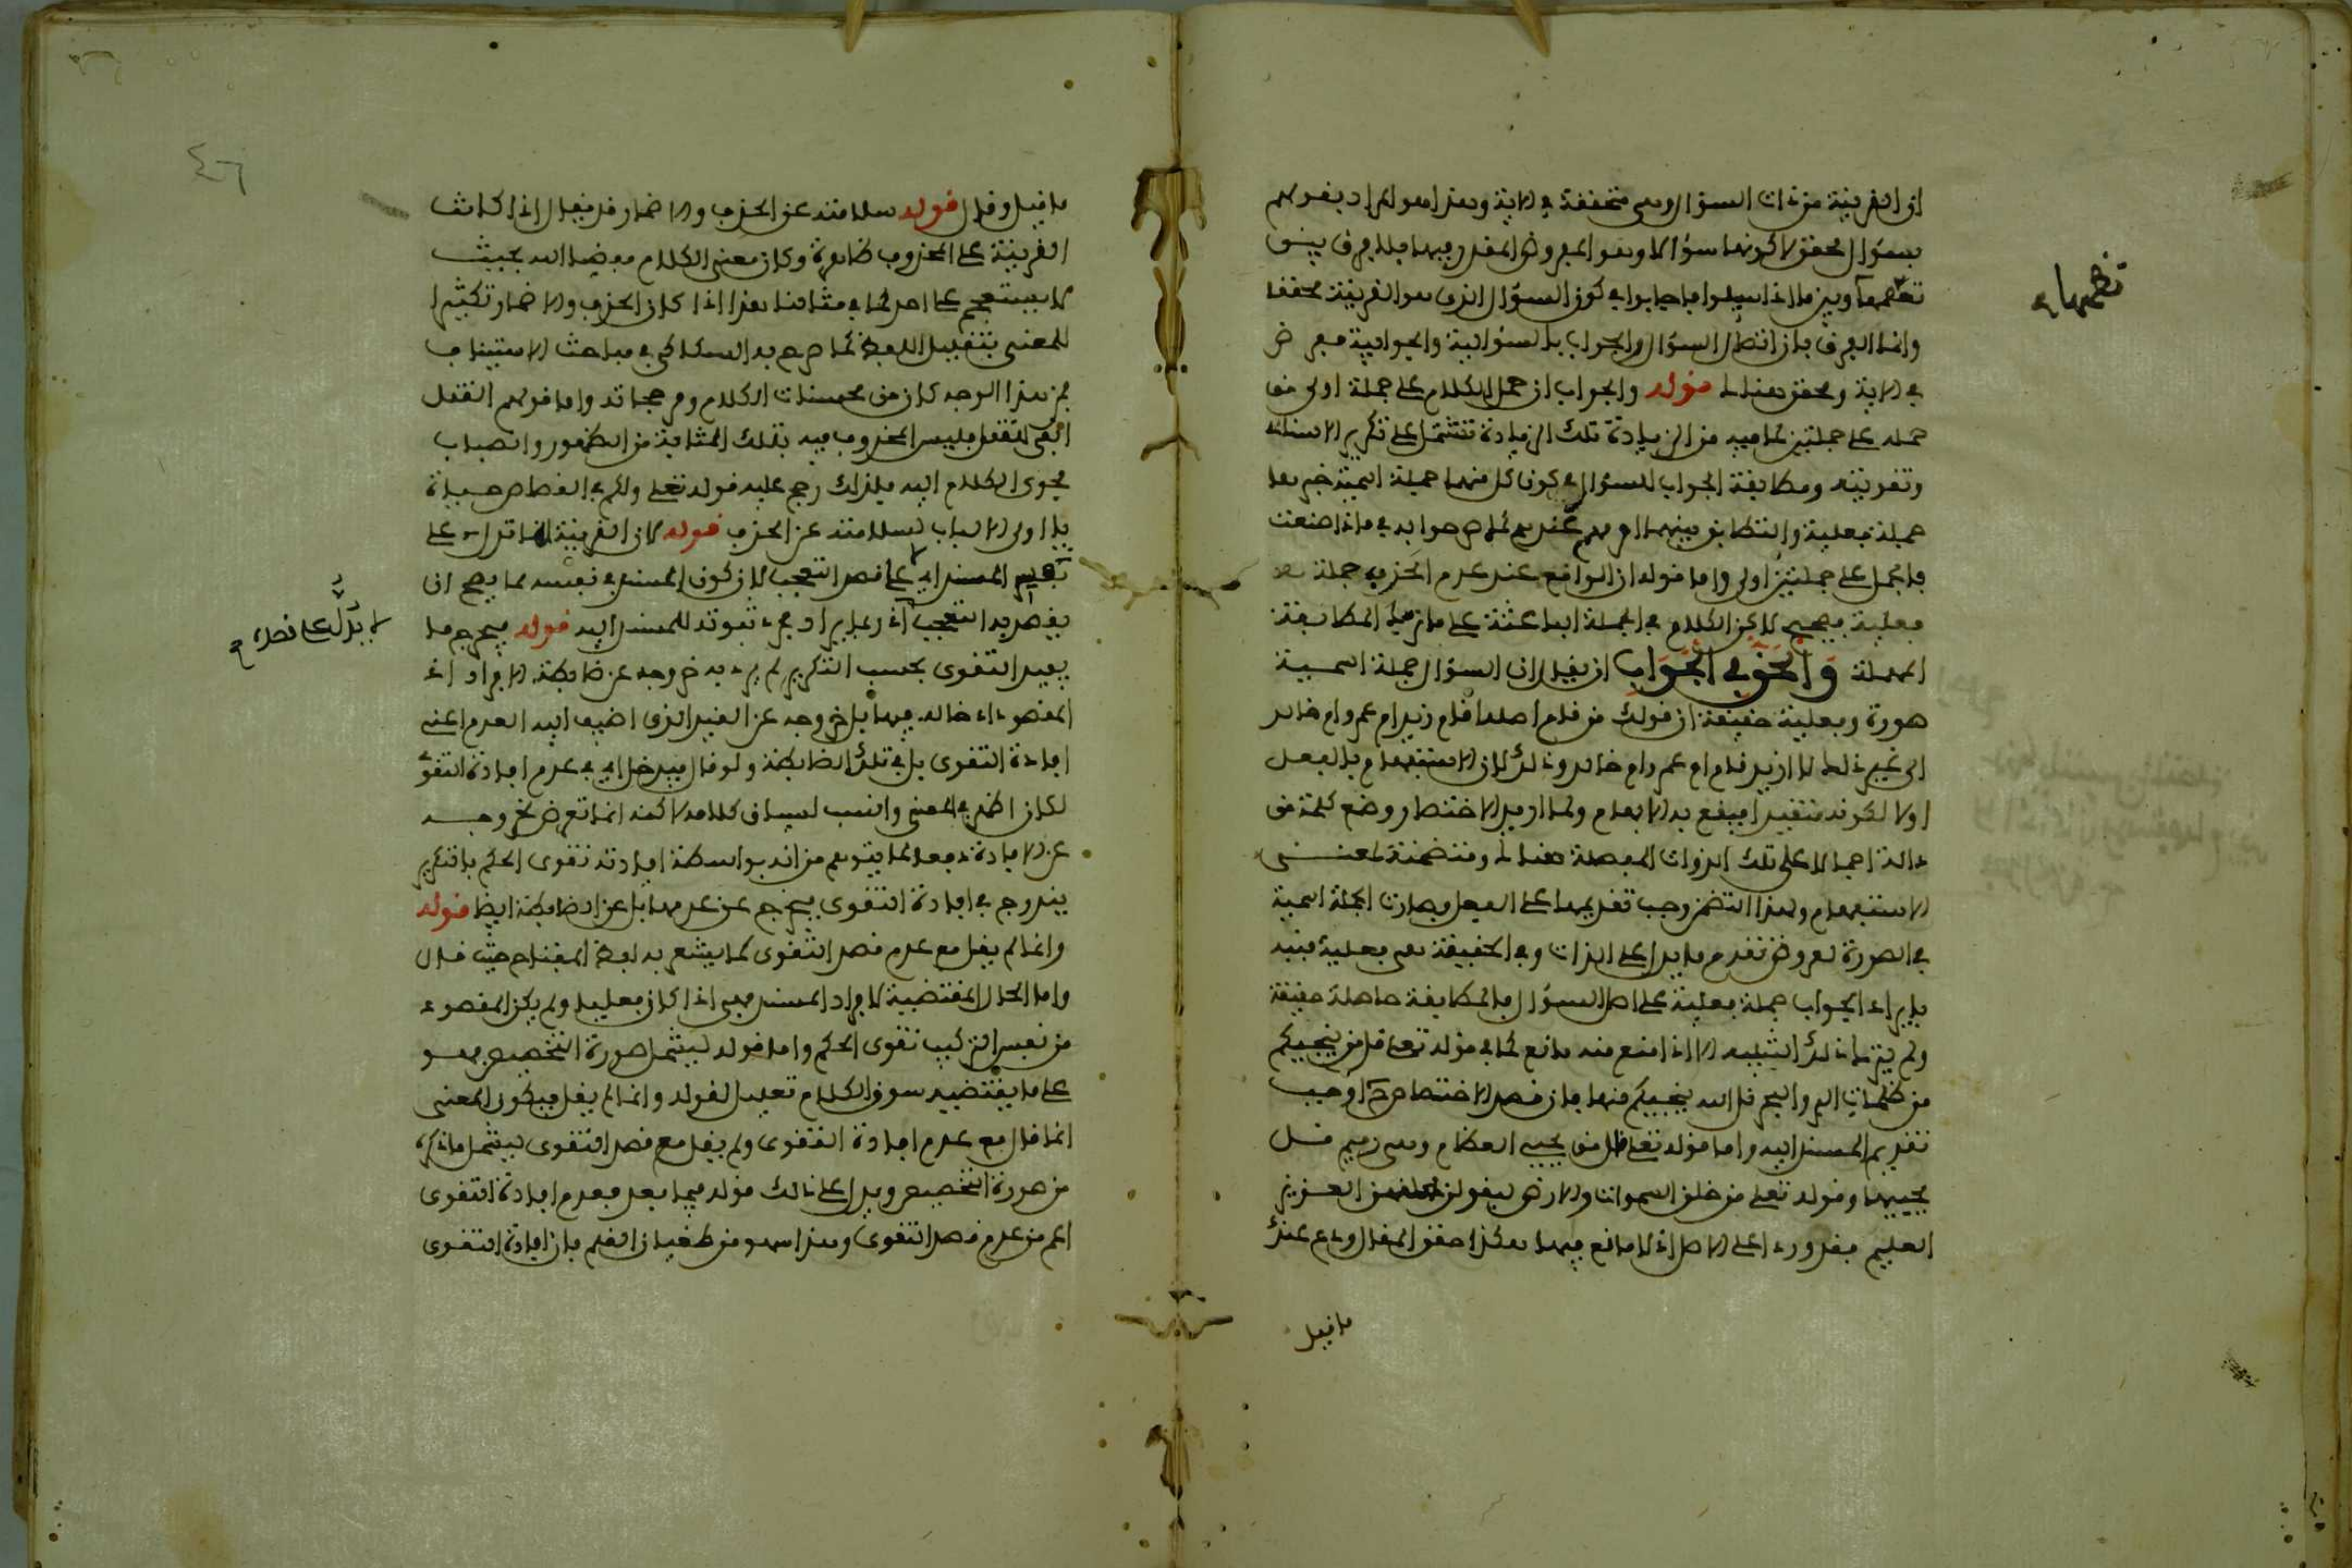 ان القرينة من ذات السؤال وهي متحققة في الاية وهذا هو المراد بقولهم
بسؤال محقق لا كونها سؤالا وهو المفروض المقدر فيها فلا فرق بين
وبين ما اذا سيلوا فاجابوا في كون السؤال الذي هو القرينة محققا
وانما الفرق بان اتصال السؤال والجواب بالسؤالية والجوابية مفرض
في الاية ومحقق هنالك قوله والجواب ان حمل الكلام على جملة اولى من
حمله على جملتين لما فيه من الزيادة تلك الزيادة تشتمل على تكرير الاسناد
وتقويته ومطابقة الجواب للسؤال في كون كل منهما جملة اسمية خبرها
جملة فعلية والتطابق بينهما امر مهم عندهم كما صرحوا به في ماذا صنعت
فالحمل على جملتين اولى واما قوله ان الواقع عند عدم الحذف جملة
فعلية فصحيح لاكن الكلام في الجملة الباعثة على ما المطابقة
المهملة والحق في الجواب ان يقال ان السؤال جملة اسمية
صورة وفعلية حقيقة ان قولك من قام اصله اقام زيد ام عمرو ام خالد
الى غير ذلك لا ازيد قام ام عمرو ام خالد وذلك لان الاستفهام بالفعل
اولا لكونه متغيرا فيقع به الابهام ولما اريد الاختصار وضع كلمة من
دالة اجمالا على تلك الذوات المفصلة هنالك ومتضمنة لمعنى
الاستفهام ولهذا التضمن وجب تقديمها على الفعل فصارت الجملة اسمية
في الصورة لعروض تقدم ما يدل على الذات وفي الحقيقة هي فعلية فنبه
بايراد الجواب جملة فعلية على اصل السؤال فالمطابقة حاصلة حقيقة
ولم يترك ذلك التنبيه الا اذا منع منه مانع كما في قوله تعلى قل من ينجيكم
من ظلمات البر والبحر قل الله ينجيكم منها فان قصد الاختصاص اوجب
تقديم المسند اليه واما قوله تعلى قال من يحيي العظام وهي رميم قل
يحييها وقوله تعلى من خلق السموات والارض ليقولن خلقهن العزيز
العليم فقد ورد على الاصل اذ لا مانع فيهما هكذا حقق المقال ودع عنك
ما قيل
ما قيل وقال قوله سلامته عن الحذف والاضمار قد يقال اذا كانت
القرينة على المحذوف ظاهرة وكان معنى الكلام مفضيا اليه بحيث
لا يستعجم على احد كما في مثالنا هذا اذا كان الحذف والاضمار تكثيرا
للمعنى بتقليل اللفظ كما صرح به السكاكي في مباحث الاستيناف
فمن هذا الوجه كان من محسنات الكلام ومرجحاته واما قولهم القتل
انفى للقتل فليس المحذوف فيه بتلك المثابة من الظهور وانصباب
فحوى الكلام اليه فلذلك رجح عليه قوله تعلى ولكم في القصاص حيوة
يا اولي الالباب لسلامته عن الحذف قوله لان القرينة انما تدل على
المسند اليه على قصد التعجب لان كون المسند في نفسه مما يصح ان
يقصد به التعجب اذ ربما يراد مجرد ثبوته للمسند اليه قوله فيخرج ما
يفيد التقوى بحسب التكرير لم يرد به خروجه عن ضابطة الافراد اذ
المقصود ادخاله فيها بل خروجه عن القيد الذي اضيف اليه العدم اعني
افادة التقوى بل في تلك الضابطة ولو قال فيدخل اي في عدم افادة التقوى
لكان اظهر في المعنى وانسب لسياق كلامه لاكنه انما تعرض لخروجه
عن الافادة دفعا لما يتوهم من انه بواسطة افادته تقوى الحكم بالتكرير
يندرج في افادة التقوى فيخرج عن عدمها بل عن الضابطة ايضا قوله
وانما لم يقل مع عدم قصد التقوى كما يشعر به لفظ المفتاح حيث قال
واما الحال المقتضية لافراد المسند فهي اذا كان فعليا ولم يكن المقصود
من نفس التركيب تقوى الحكم واما قوله ليشمل صورة التخصيص فهو
على ما يقتضيه سوق الكلام تعليل لقوله وانما لم يقل فيكون المعنى
انما قال مع عدم افادة التقوى ولم يقل مع قصد التقوى ليشمل ما ذكره
من صورة التخصيص ويدل على ذلك قوله فيما بعد فعدم افادة التقوى
اعم من عدم قصد التقوى وهذا سهو من طغيان القلم فان افادة التقوى
لا يدل على قصد
٤٦